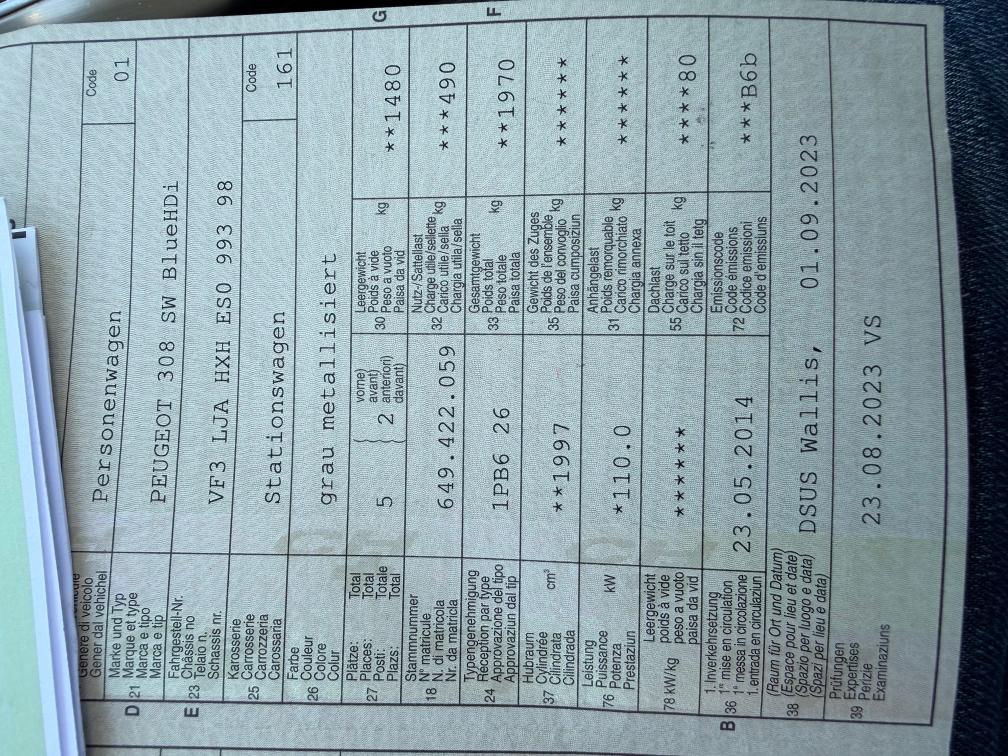 Genere di veicolo
Gener dal vehichel
Personenwagen
Code
01
D 21 Marke und Typ
Marque et type
Marca e tipo
Marca e tip
PEUGEOT 308 SW BlueHDi
E 23 Fahrgestell-Nr.
Châssis no
Telaio n.
Schassis nr.
VF3 LJA HXH ES0 993 98
25 Karosserie
Carrosserie
Carrozzeria
Carossaria
Stationswagen
Code
161
26 Farbe
Couleur
Colore
Colur
grau metallisiert
27 Plätze: Total
Places: Total
Posti: Totale
Plazs: Total
5
2
vorne)
avant)
anteriori)
davant)
G
30 Leergewicht
Poids à vide
Peso a vuoto kg
Paisa da vid
**1480
18 Stammnummer
N° matricule
N. di matricola
Nr. da matricla
649.422.059
32 Nutz-/Sattellast
Charge utile/sellette
Carico utile/sella kg
Chargia utila/sella
***490
24 Typengenehmigung
Réception par type
Approvazione del tipo
Approvaziun dal tip
1PB6 26
F
33 Gesamtgewicht
Poids total
Peso totale kg
Paisa totala
**1970
37 Hubraum
Cylindrée cm³
Cilindrata
Cilindrada
**1997
35 Gewicht des Zuges
Poids de l'ensemble kg
Peso del convoglio
Paisa cumposiziun
*******
76 Leistung
Puissance kW
Potenza
Prestaziun
*110.0
31 Anhängelast
Poids remorquable
Carico rimorchiato kg
Chargia annexa
*******
78 kW/kg Leergewicht
poids à vide
peso a vuoto
paisa da vid
******
55 Dachlast
Charge sur le toit
Carico sul tetto kg
Chargia sin il tetg
*****80
B 36 1. Inverkehrsetzung
1re mise en circulation
1a messa in circolazione
1. entrada en circulaziun
23.05.2014
72 Emissionscode
Code émissions
Codice emissioni
Code d'emissiuns
***B6b
38 (Raum für Ort und Datum)
(Espace pour lieu et date)
(Spazio per luogo e data)
(Spazi per lieu e data)
DSUS Wallis, 01.09.2023
39 Prüfungen
Expertises
Perizie
Examinaziuns
23.08.2023 VS